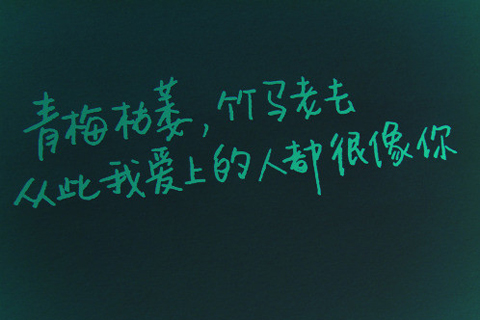 青梅枯萎，竹马老去
从此我爱上的人都很像你